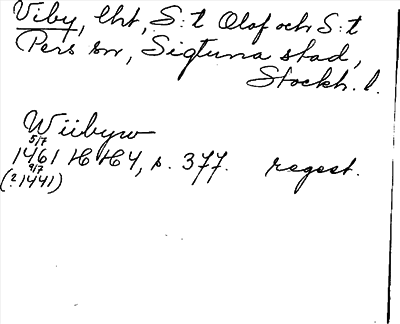 Viby, lht, S:t Olof och S:t
Pers sn, Sigtuna stad,
Stockh. l.
Wiibyw
5/7
1461 HH 4, s. 377. regest.
9/7
(?1441)